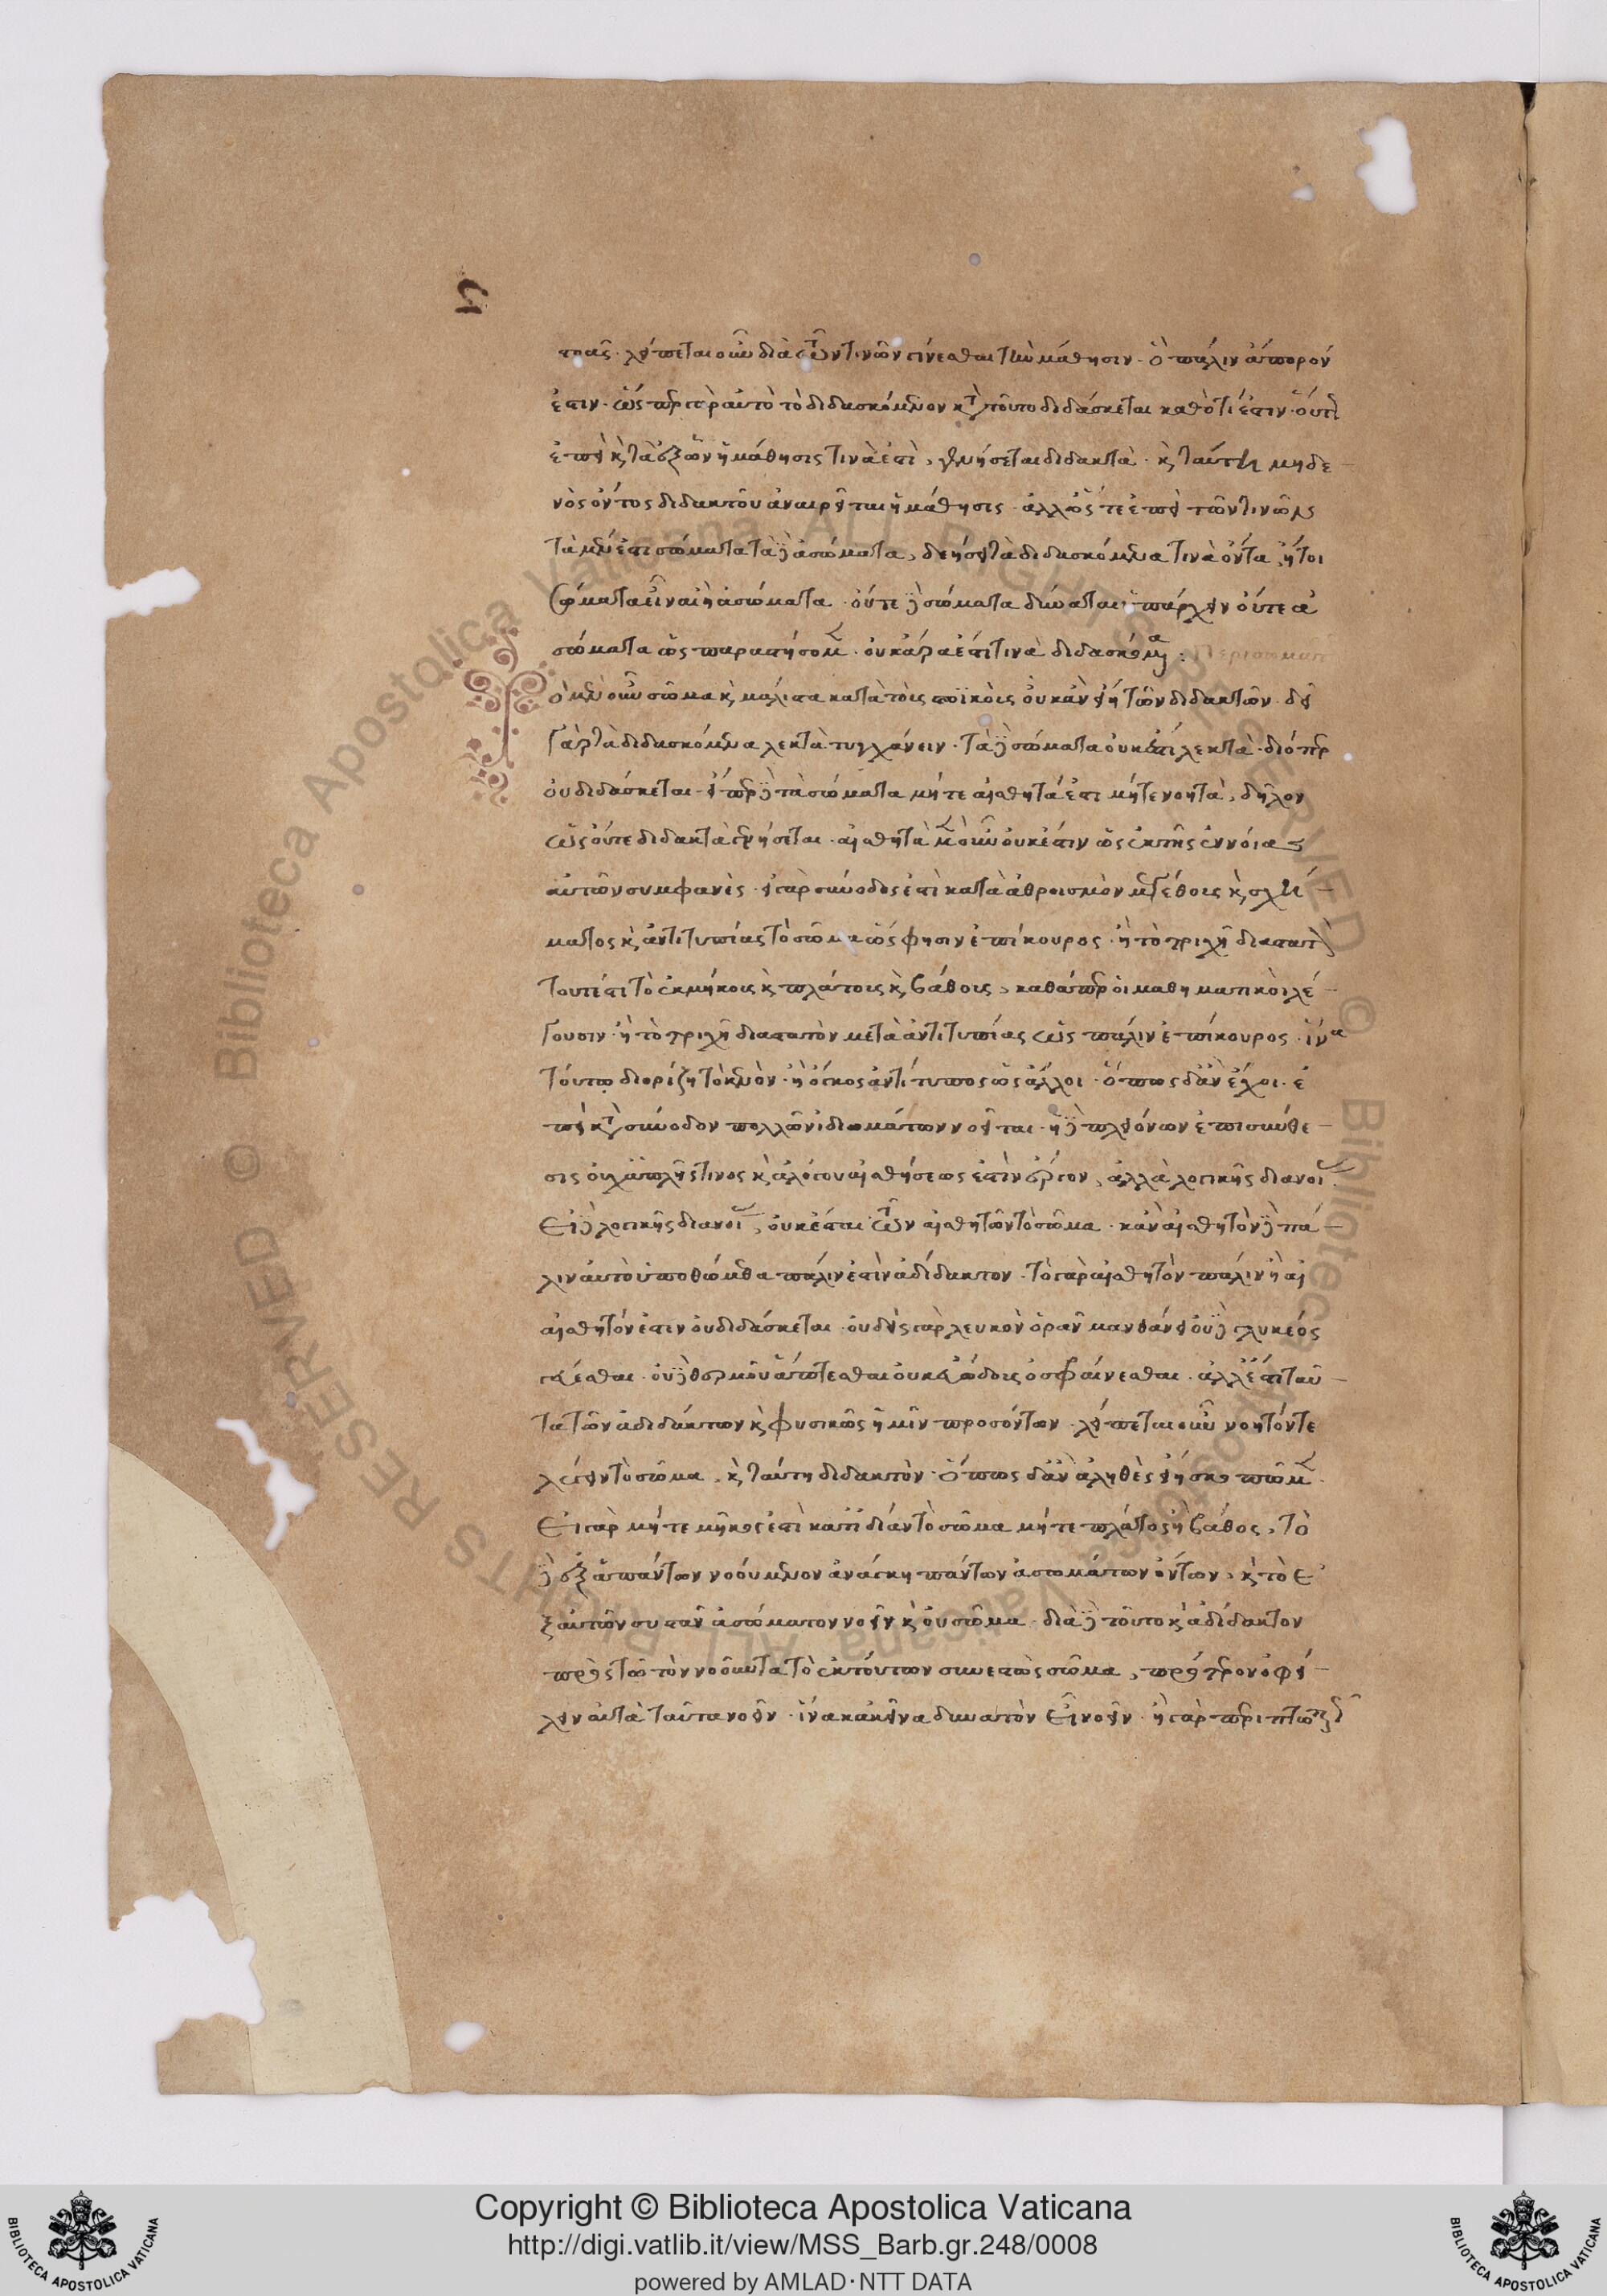 στοᾶς· λείπεται οὖν διὰ τῶν τινῶν γίνεσθαι τὴν μάθησιν· ὃ πάλιν ἄπορόν
ἐστιν· ὥσπερ γὰρ αὐτὸ τὸ διδασκόμενον κατὰ τοῦτο διδάσκεται καθὸ τὶ ἐστιν· οὕτως
ἐπεὶ καὶ τὰ ἐξ ὧν ἡ μάθησις τινὰ ἐστὶ, γενήσεται διδακτά· καὶ ταύτῃ μηδε
νὸς ὄντος διδακτοῦ ἀναιρεῖται ἡ μάθησις· ἄλλως τε ἐπεὶ τῶν τινῶν
τὰ μέν ἐστι σώματα τὰ δὲ ἀσώματα, δεήσει τὰ διδασκόμενα τινὰ ὄντα, ἤτοι
σώματα εἶναι ἢ ἀσώματα· οὔτε δὲ σώματα δύναται ὑπάρχειν οὔτε ἀ
σώματα ὡς παραστήσομεν· οὐκ ἄρα ἐστί τινὰ διδασκόμενα: Περὶ σώματος
ὸ μὲν οὖν σῶμα καὶ μάλιστα κατὰ τοὺς στοϊκοὺς οὐκ ἂν εἴη τῶν διδακτῶν· δεῖ
γὰρ τὰ διδασκόμενα λεκτὰ τυγχάνειν· τὰ δὲ σώματα οὐκ ἔστι λεκτά· διόπερ
οὐ διδάσκεται· εἴπερ δὲ τὰ σώματα μήτε αἰσθητά ἐστι μήτε νοητά, δῆλον
ὡς οὔτε διδακτὰ γενήσεται· αἰσθητὰ μὲν οὖν οὐκ ἔστιν ὡς ἐκ τῆς ἐννοίας
αὐτῶν συμφανὲς· εἰ γὰρ σύνοδος ἐστὶ κατὰ ἀθροισμὸν μεγέθους καὶ σχή
ματος καὶ ἀντιτυπίας τὸ σῶμα ὥς φησιν ἐπίκουρος· ἢ τὸ τριχῆ διαστατὸν
τουτέστι τὸ ἐκ μήκους καὶ πλάτους καὶ βάθους, καθάπερ οἱ μαθηματικοὶ λέ
γουσιν· ἢ τὸ τριχῆ διαστατὸν μετὰ ἀντιτυπίας ὡς πάλιν ἐπίκουρος· ἵνα
τούτῳ διορίζῃ τὸ κενὸν· ἢ ὄγκος ἀντίτυπος ὡς ἄλλοι· ὅπως δ' ἂν ἔχοι· ἐ
πεὶ κατὰ σύνοδον πολλῶν ἰδιωμάτων νοεῖται· ἡ δὲ πλειόνων ἐπισύνθε
σις οὐχ ἁπλῆς τινος καὶ ἀλόγου αἰσθήσεως ἐστὶν ἔργον, ἀλλὰ λογικῆς διανοίας.
Εἰ δὲ λογικῆς διανοίας, οὐκ ἔσται τῶν αἰσθητῶν τὸ σῶμα· κἂν αἰσθητὸν δὲ πά
λιν αὐτὸ ὑποθώμεθα πάλιν ἐστὶν ἀδίδακτον· τὸ γὰρ αἰσθητὸν πάλιν ᾗ αἰ
αἰσθητόν ἐστιν οὐ διδάσκεται· οὐδεὶς γὰρ λευκὸν ὁρᾶν μανθάνει οὐδὲ γλυκέος
γεύεσθαι· οὐδὲ θερμοῦ ἅπτεσθαι οὐκ εὐώδους ὀσφραίνεσθαι· ἀλλ' ἔστι ταῦ
τα τῶν ἀδιδάκτων καὶ φυσικῶς ἡμῖν προσόντων· λείπεται οὖν νοητόν τε
λέγειν τὸ σῶμα, καὶ ταύτῃ διδακτὸν· ὅπως δ' ἂν ἀληθὲς εἴη σκοπῶμεν·
Εἰ γὰρ μήτε μῆκος ἐστὶ κατ' ἰδίαν τὸ σῶμα μήτε πλάτος ἢ βάθος, τὸ
δὲ ἐξ ἁπάντων νοούμενον ἀνάγκη πάντων ἀσωμάτων ὄντων, καὶ τὸ ἐ
ξ αὐτῶν συστὰν ἀσώματον νοεῖν καὶ οὐ σῶμα· διὰ δὲ τοῦτο καὶ ἀδίδακτον
πρὸς τῷ τὸν νοοῦντα τὸ ἐκ τούτων συνεστὼς σῶμα, πρότερον ὀφεί
λειν αὐτὰ ταῦτα νοεῖν· ἵνα κἀκεῖνα δυνατὸν ᾖ νοεῖν· ἢ γὰρ περιπτωτικῶς
Copyright © Biblioteca Apostolica Vaticana
http://digi.vatlib.it/view/MSS_Barb.gr.248/0008
powered by AMLAD·NTT DATA